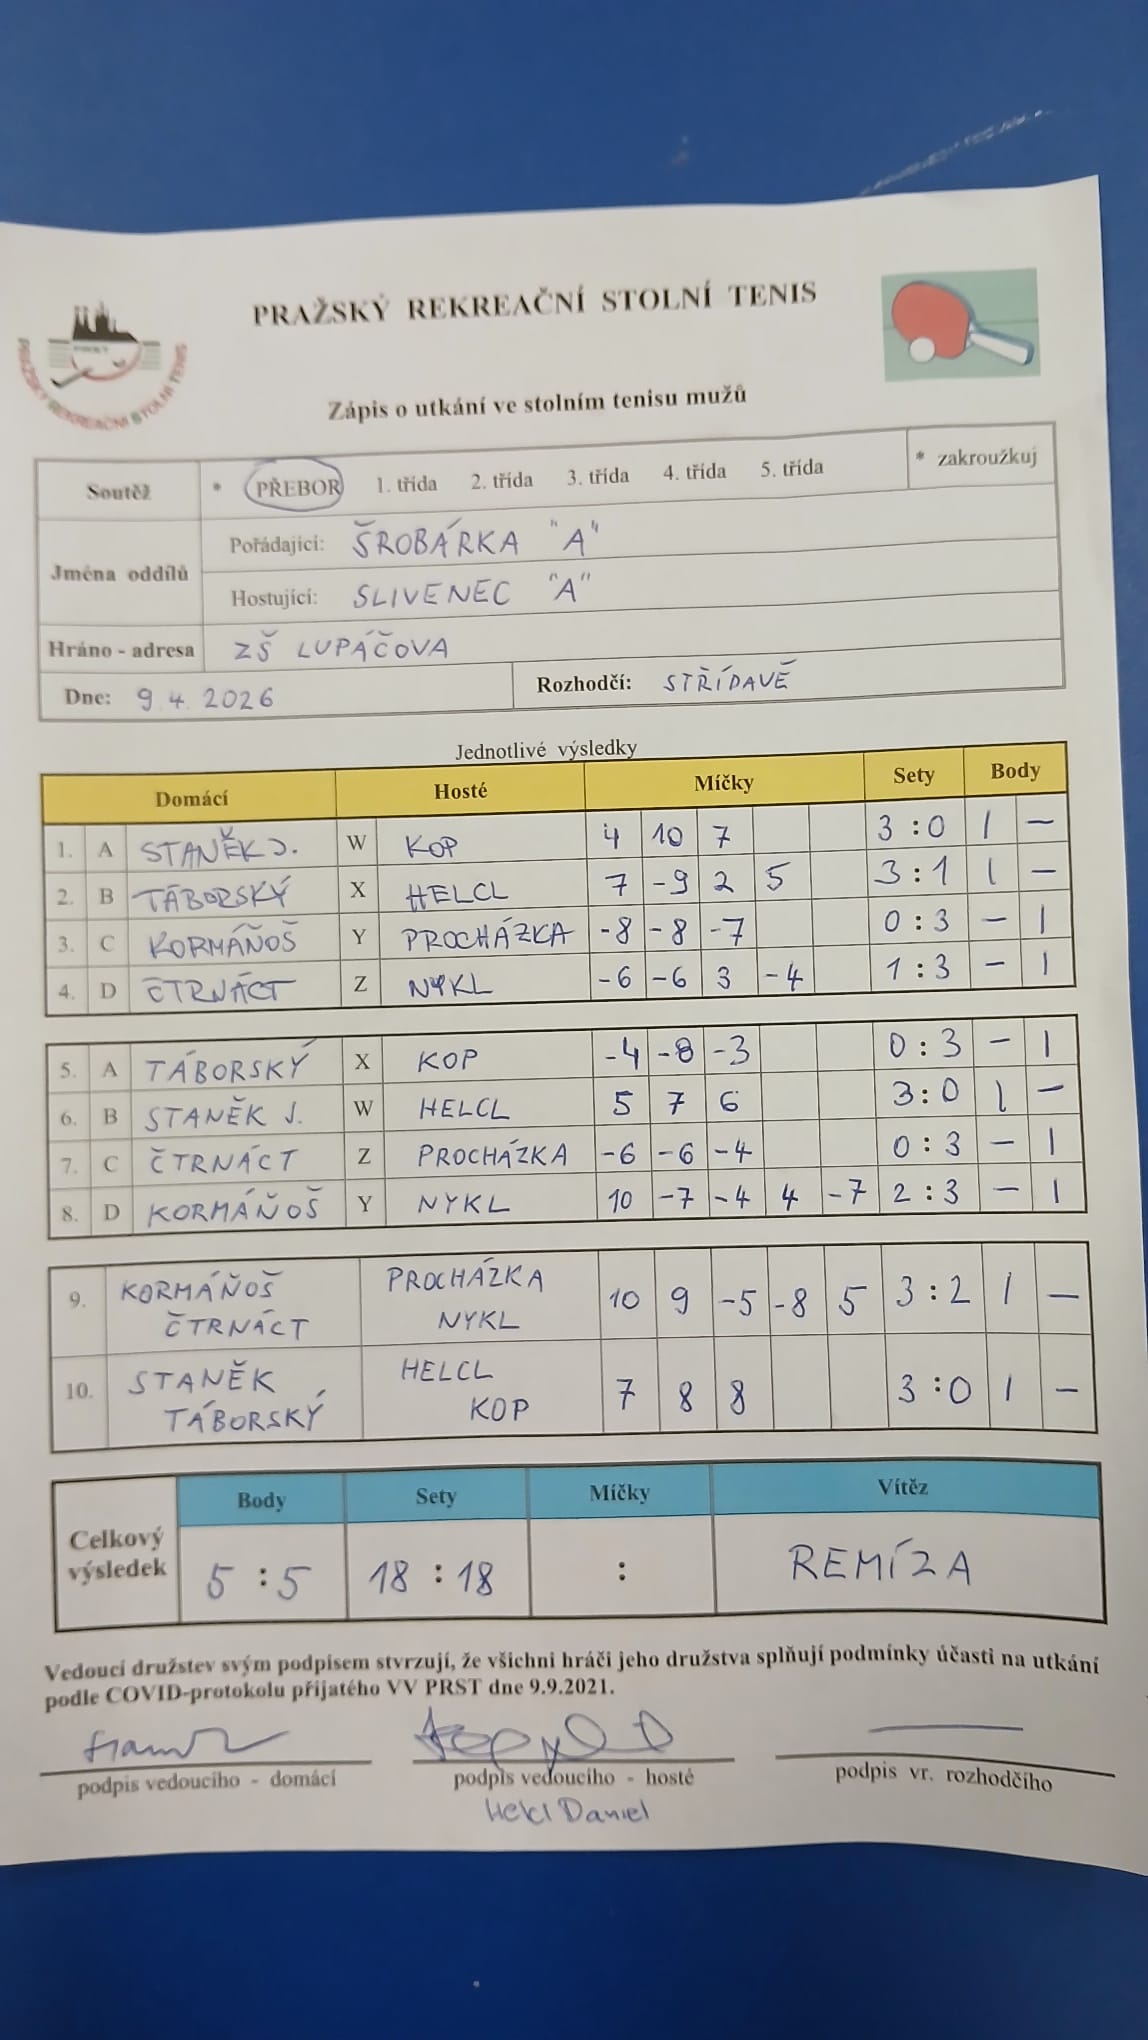 PRAŽSKÝ REKREAČNÍ STOLNÍ TENIS
PRAŽSKÝ REKREAČNÍ STOLNÍ TENIS
Zápis o utkání ve stolním tenisu mužů
Soutěž * PŘEBOR 1. třída 2. třída 3. třída 4. třída 5. třída * zakroužkuj
Jména oddílů
Pořádající: ŠROBÁRKA "A"
Hostující: SLIVENEC "A"
Hráno - adresa ZŠ LUPÁČOVA
Dne: 9.4.2026 Rozhodčí: STŘÍDAVĚ
Jednotlivé výsledky
Domácí Hosté Míčky Sety Body
1. A STANĚK J. W KOP 4 10 7 3:0 1 –
2. B TÁBORSKÝ X HELCL 7 -9 2 5 3:1 1 –
3. C KORMÁŇOŠ Y PROCHÁZKA -8 -8 -7 0:3 – 1
4. D ČTRNÁCT Z NYKL -6 -6 3 -4 1:3 – 1
5. A TÁBORSKÝ X KOP -4 -8 -3 0:3 – 1
6. B STANĚK J. W HELCL 5 7 6 3:0 1 –
7. C ČTRNÁCT Z PROCHÁZKA -6 -6 -4 0:3 – 1
8. D KORMÁŇOŠ Y NYKL 10 -7 -4 4 -7 2:3 – 1
9. KORMÁŇOŠ PROCHÁZKA 10 9 -5 -8 5 3:2 1 –
ČTRNÁCT NYKL
10. STANĚK HELCL 7 8 8 3:0 1 –
TÁBORSKÝ KOP
Celkový výsledek
Body Sety Míčky Vítěz
5:5 18:18 : REMÍZA
Vedoucí družstev svým podpisem stvrzují, že všichni hráči jeho družstva splňují podmínky účasti na utkání
podle COVID-protokolu přijatého VV PRST dne 9.9.2021.
podpis vedoucího - domácí podpis vedoucího - hosté podpis vr. rozhodčího
Helcl Daniel